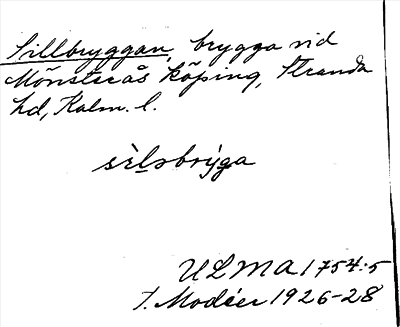 Sillbryggan, brygga vid
Mönsterås köping, Stranda
hd, Kalm. l.
sèlsbrýga
ULMA 1754:5
I. Modéer 1926-28